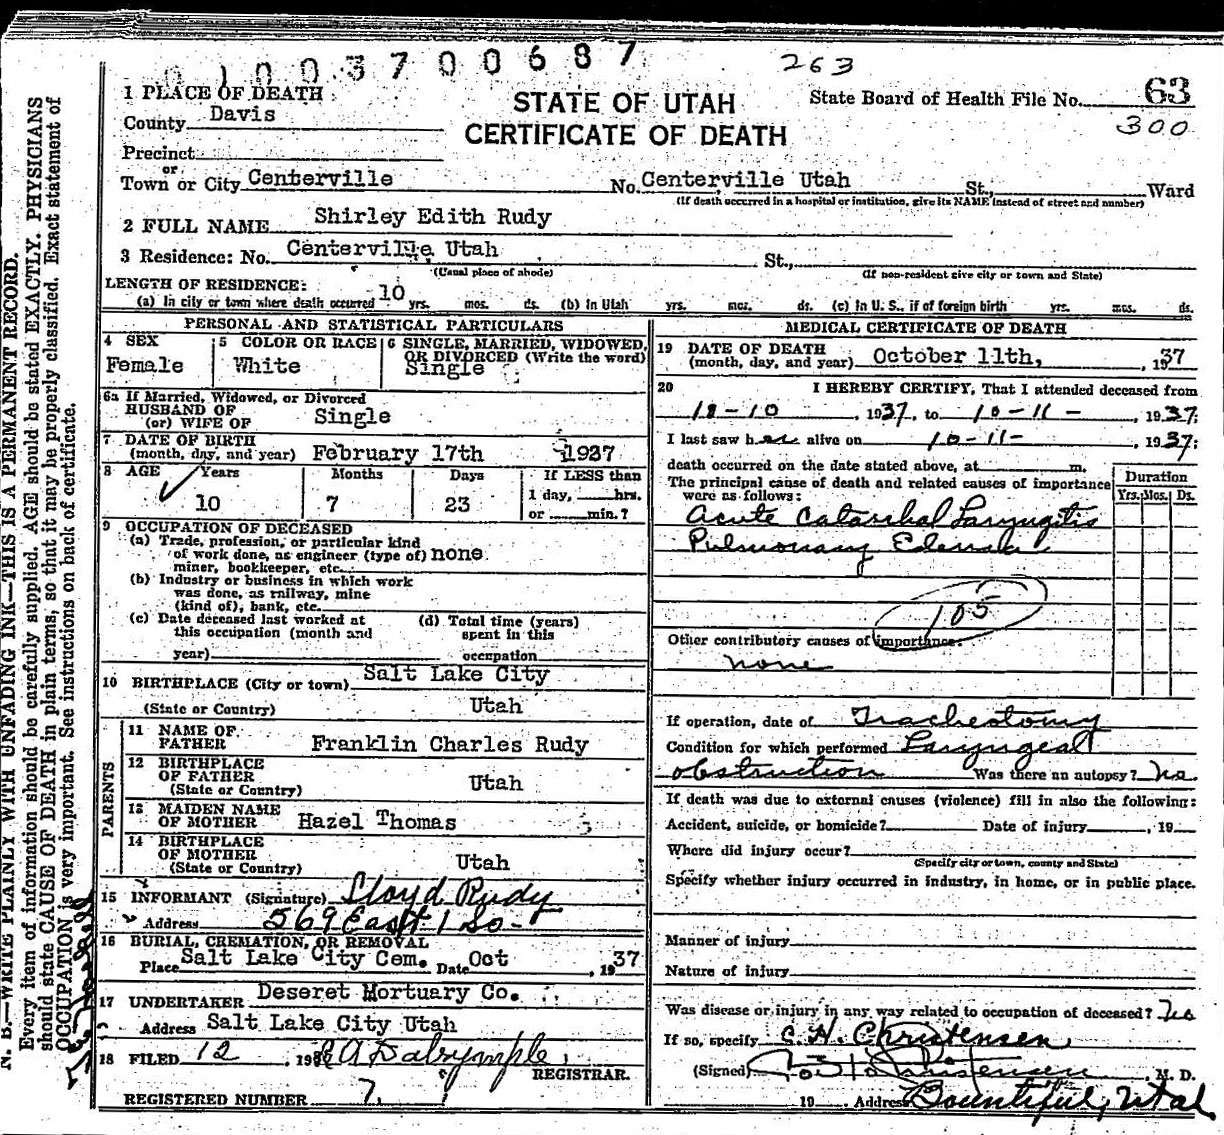 0 1 0 0 3 7 0 0 6 8 7
263
1 PLACE OF DEATH
STATE OF UTAH
CERTIFICATE OF DEATH
State Board of Health File No. 63
300
County Davis
Precinct
or
Town or City Centerville No. Centerville Utah St., Ward
(If death occurred in a hospital or institution, give its NAME instead of street and number)
2 FULL NAME Shirley Edith Rudy
3 Residence: No. Centerville Utah St.,
(Usual place of abode) (If non-resident give city or town and State)
LENGTH OF RESIDENCE:
(a) In city or town where death occurred 10 yrs. mos. ds. (b) In Utah yrs. mos. ds. (c) In U. S., if of foreign birth yrs. mos. ds.
PERSONAL AND STATISTICAL PARTICULARS
4 SEX 5 COLOR OR RACE 6 SINGLE, MARRIED, WIDOWED,
OR DIVORCED (Write the word)
Female White Single
6a If Married, Widowed, or Divorced
HUSBAND OF
(or) WIFE OF Single
7 DATE OF BIRTH
(month, day, and year) February 17th 1927
8 AGE Years Months Days If LESS than
10 7 23 1 day, hrs.
or min.?
9 OCCUPATION OF DECEASED
(a) Trade, profession, or particular kind
of work done, as engineer (type of) none
miner, bookkeeper, etc.
(b) Industry or business in which work
was done, as railway, mine
(kind of), bank, etc.
(c) Date deceased last worked at (d) Total time (years)
this occupation (month and spent in this
year) occupation
10 BIRTHPLACE (City or town) Salt Lake City
(State or Country) Utah
PARENTS
11 NAME OF
FATHER Franklin Charles Rudy
12 BIRTHPLACE
OF FATHER Utah
(State or Country)
13 MAIDEN NAME
OF MOTHER Hazel Thomas
14 BIRTHPLACE
OF MOTHER
(State or Country) Utah
15 INFORMANT (Signature) Lloyd Rudy
Address 569 East 1 So-
16 BURIAL, CREMATION, OR REMOVAL
Place Salt Lake City Cem. Date Oct , 1937
17 UNDERTAKER Deseret Mortuary Co.
Address Salt Lake City Utah
18 FILED 12 , 19 A Dalrymple
REGISTRAR.
REGISTERED NUMBER 7
MEDICAL CERTIFICATE OF DEATH
19 DATE OF DEATH
(month, day, and year) October 11th, , 1937
20 I HEREBY CERTIFY, That I attended deceased from
10-10 , 1937, to 10-11- , 1937;
I last saw her alive on 10-11- , 1937;
death occurred on the date stated above, at m.
The principal cause of death and related causes of importance
were as follows:
Duration
Yrs. Mos. Ds.
Acute Catarrhal Laryngitis
Pulmonary Edema
105
Other contributory causes of importance:
none
If operation, date of Tracheotomy
Condition for which performed Laryngeal
obstruction Was there an autopsy? No
If death was due to external causes (violence) fill in also the following:
Accident, suicide, or homicide? Date of injury , 19
Where did injury occur?
(Specify city or town, county and State)
Specify whether injury occurred in industry, in home, or in public place.
Manner of injury
Nature of injury
Was disease or injury in any way related to occupation of deceased? No
If so, specify C. H. Christensen
(Signed) Christensen , M. D.
19 Address Bountiful, Utah
N. B.—WRITE PLAINLY WITH UNFADING INK—THIS IS A PERMANENT RECORD.
Every item of information should be carefully supplied. AGE should be stated EXACTLY. PHYSICIANS
should state CAUSE OF DEATH in plain terms, so that it may be properly classified. Exact statement of
OCCUPATION is very important. See instructions on back of certificate.